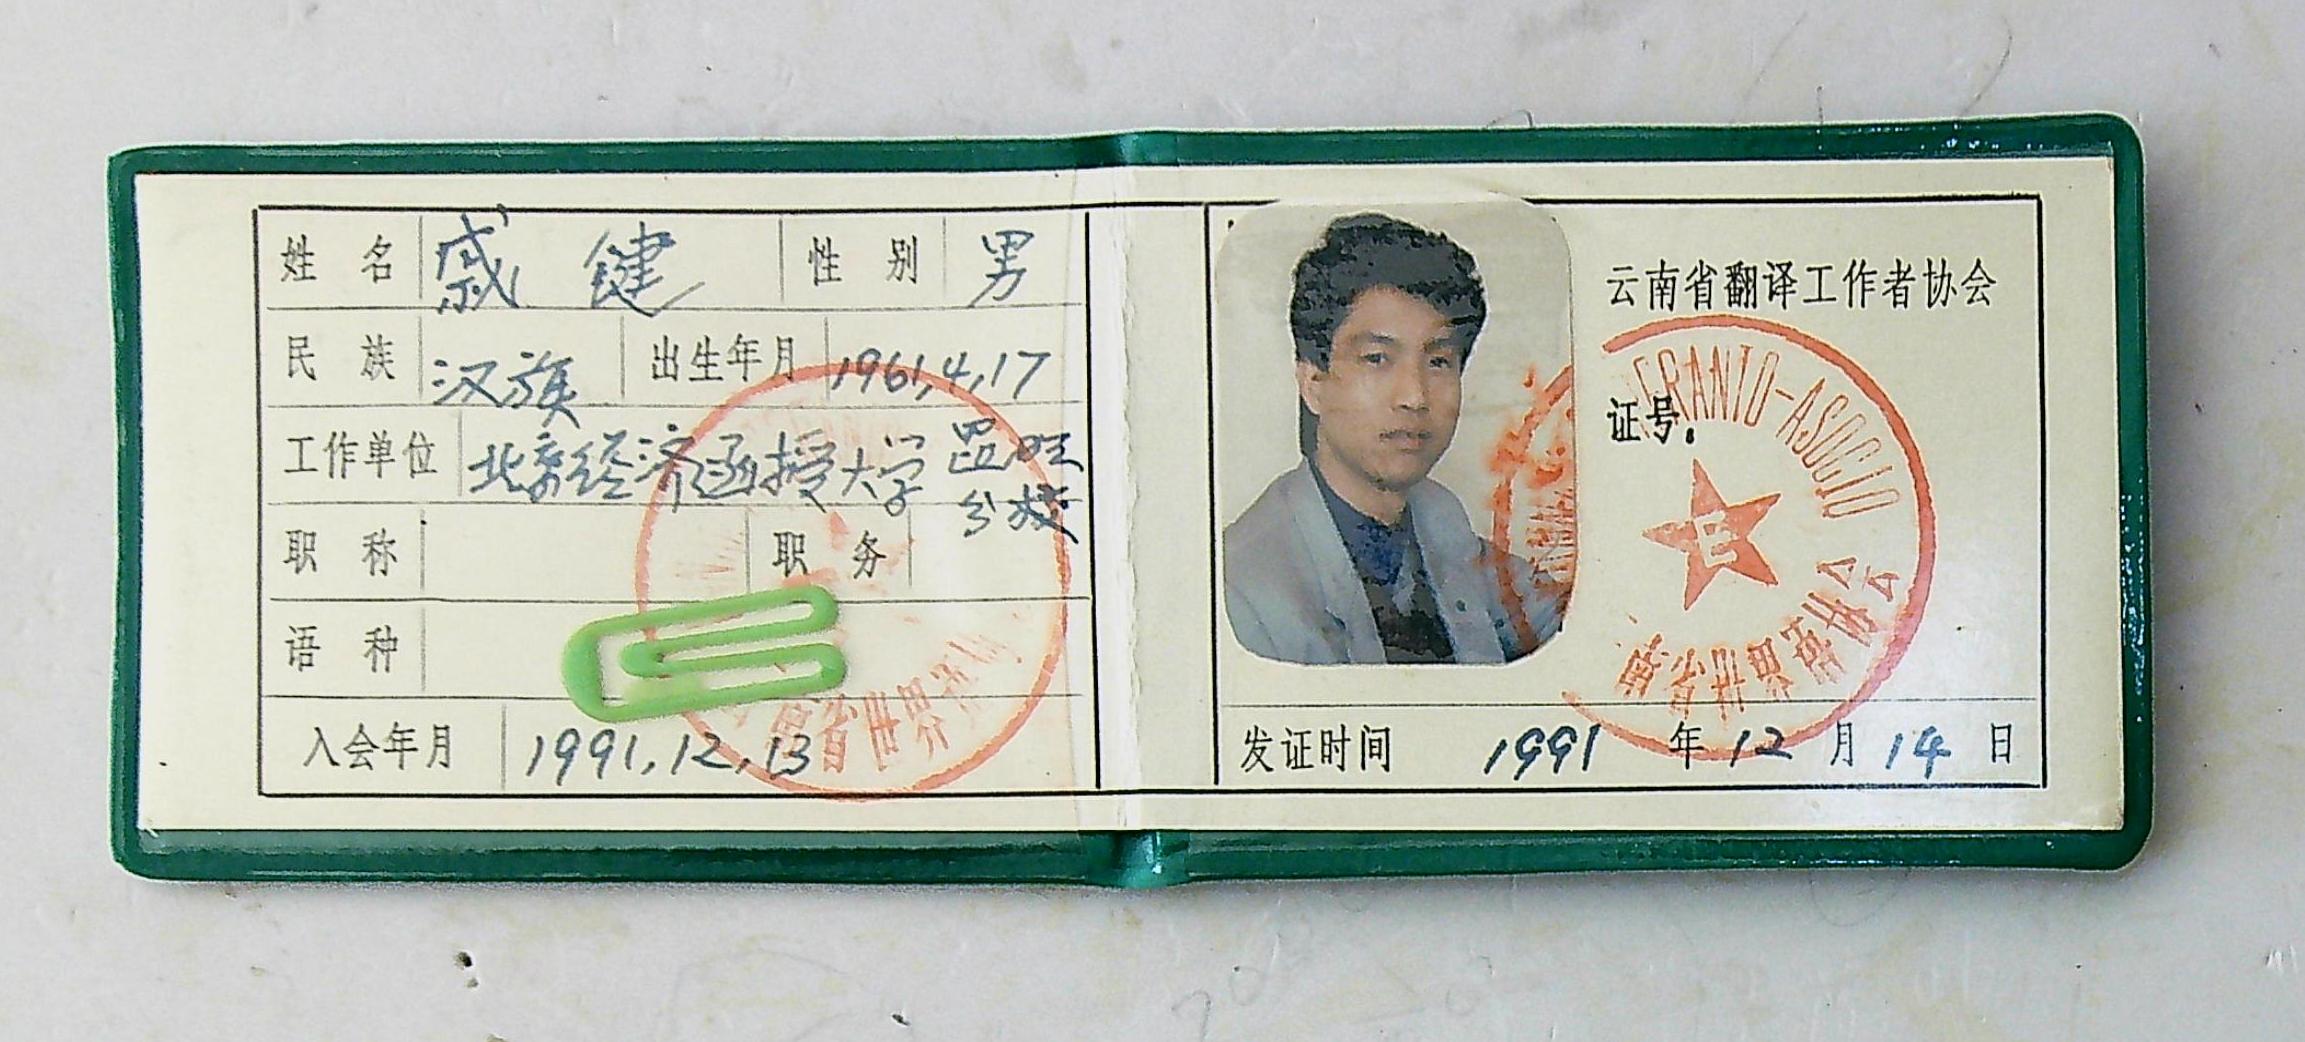 姓 名 戚 键 性 别 男
民 族 汉族 出生年月 1961,4,17
工作单位 北京经济函授大学 昆明
分校
职 称 职 务
语 种
入会年月 1991,12,13
省世界
云南省翻译工作者协会
证号:
ERANTO-ASOCIO
省世界语协会
发证时间 1991 年 12 月 14 日